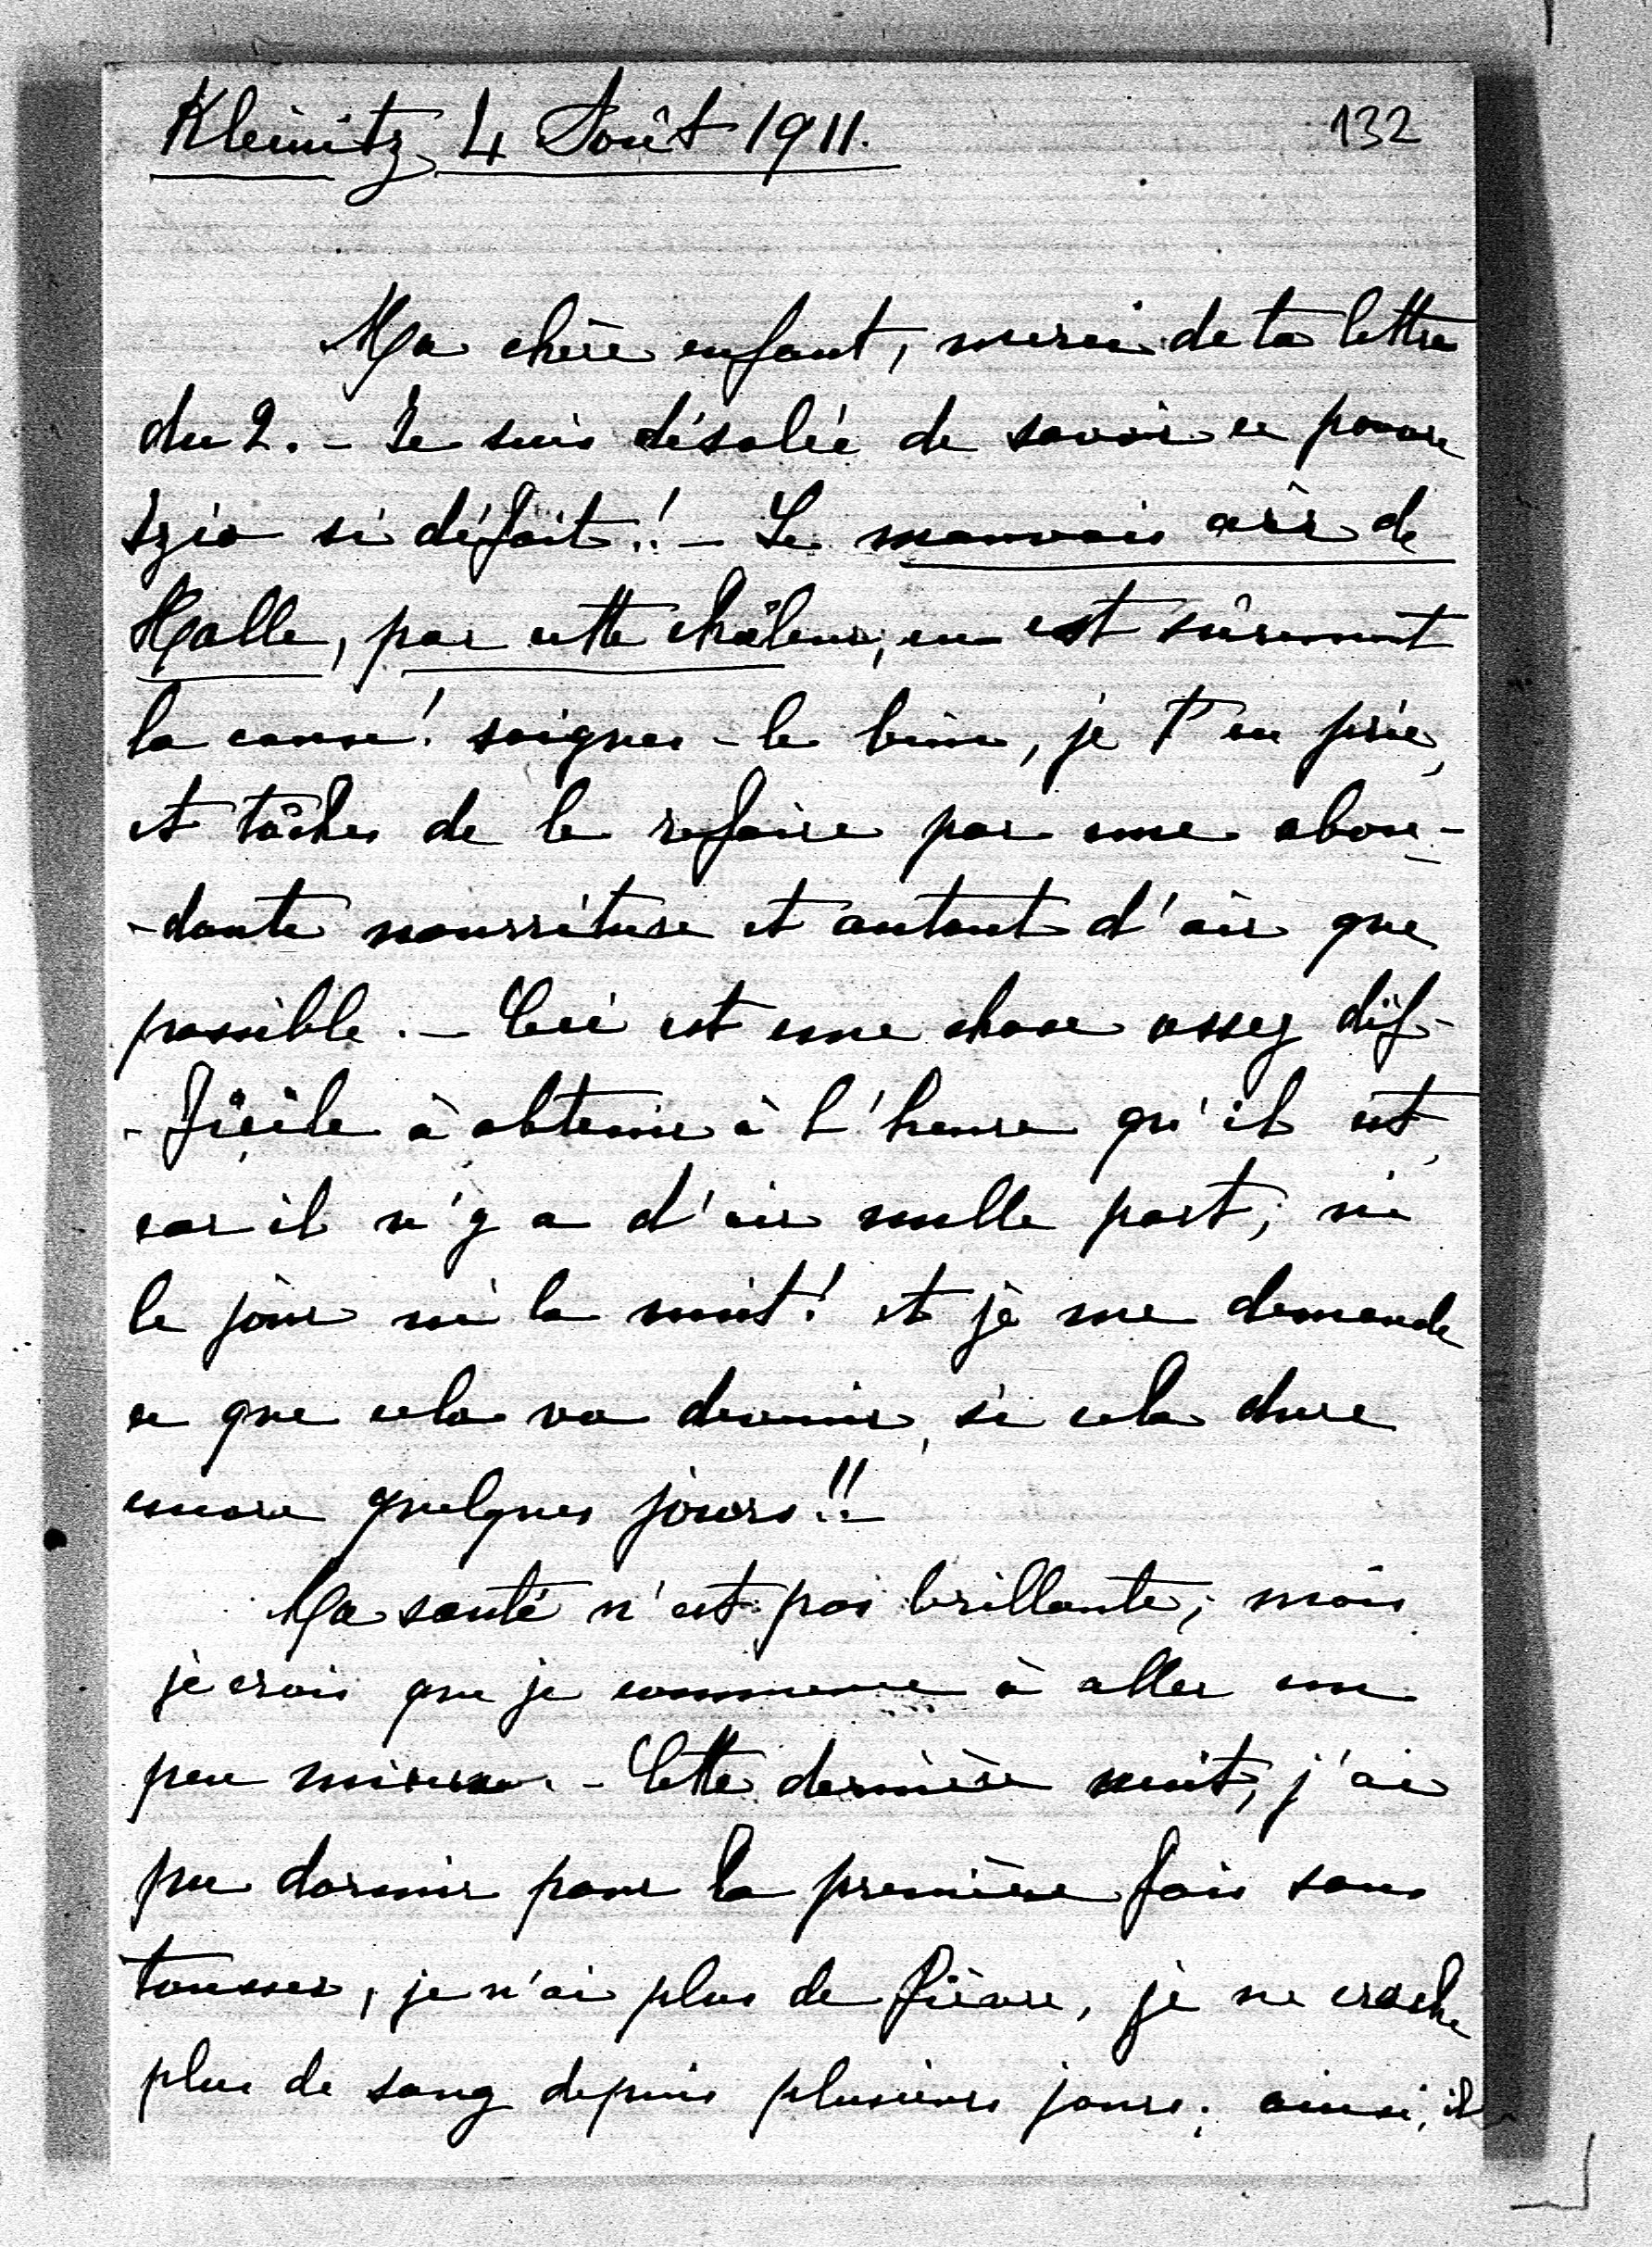 Kleinitz, 4 Août 1911.
132
Ma chère enfant, merci de ta lettre
du 2. – Je suis désolée de savoir ce pauvre
Izio si défait! – Le mauvais air de
Halle, par cette chaleur, en est sûrement
la cause! soignes-le bien, je t'en prie,
et tâches de le refaire par une abon-
-dante nourriture et autant d'air que
possible. – Ceci est une chose assez dif-
-ficile à obtenir à l'heure qu'il est,
car il n'y a d'air nulle part, ni
le jour ni la nuit! et je me demande
ce que cela va devenir, si cela dure
encore quelques jours!!
Ma santé n'est pas brillante, mais
je crois que je commence à aller un
peu mieux. – Cette dernière nuit, j'ai
pu dormir pour la première fois sans
tousser, je n'ai plus de fièvre, je ne crache
plus de sang depuis plusieurs jours; ainsi, il